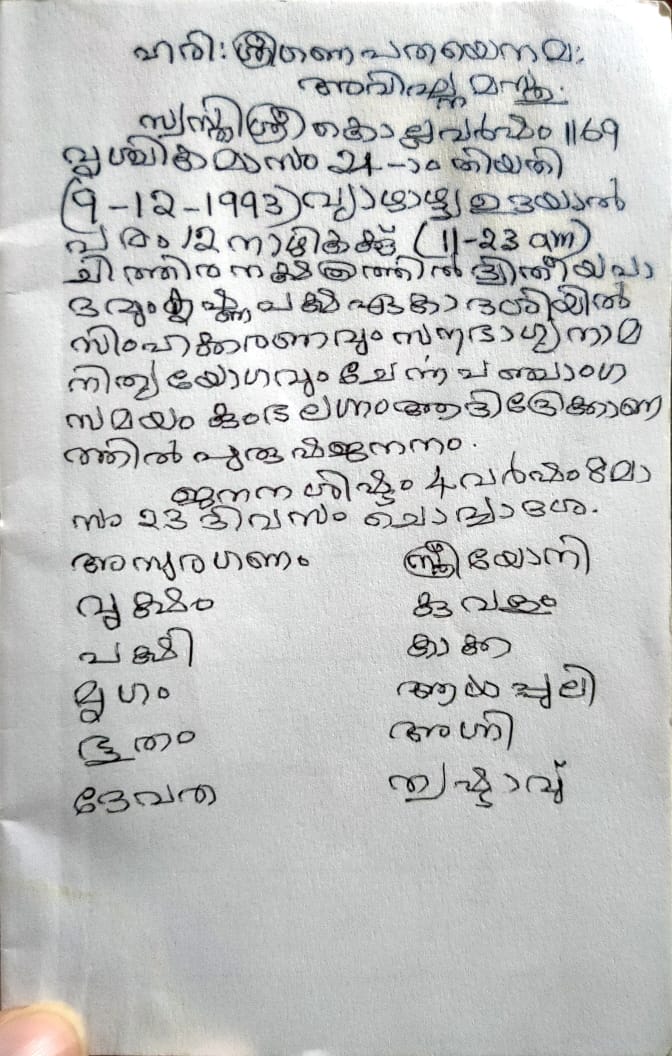 ഹരി: ശ്രീഗണപതയെനമ:
അവിഘ്ന മസ്തു.
സ്വസ്തിശ്രീ കൊല്ലവർഷം 1169
വൃശ്ചികമാസം 24-ാം തിയതി
(9-12-1993) വ്യാഴാഴ്ച ഉദയാൽ
പരം 12 നാഴികക്ക് (11-23 am)
ചിത്തിരനക്ഷത്രത്തിൽ ദ്വിതീയപാ
ദവും കൃഷ്ണപക്ഷഏകാദശിയിൽ
സിംഹക്കരണവും സൗഭാഗ്യനാമ
നിത്യയോഗവും ചേർന്ന പഞ്ചാംഗ
സമയം കുംഭലഗ്നം ആദിദ്രേക്കാണ
ത്തിൽ പുരുഷജനനം.
ജനന ശിഷ്ടം 4 വർഷം 8 മാ
സം 23 ദിവസം ചൊവ്വാദശ.
അസുരഗണം സ്ത്രീയോനി
വൃക്ഷം കൂവളം
പക്ഷി കാക്ക
മൃഗം ആൾപ്പുലി
ഭൂതം അഗ്നി
ദേവത ത്വഷ്ടാവ്